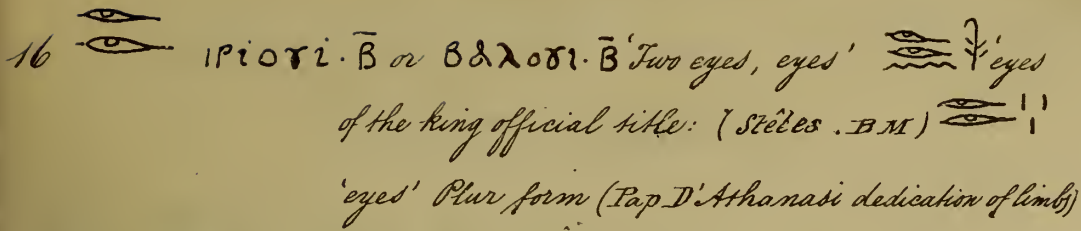 16 𓁹𓁹 ⲓⲣⲓⲟⲩⲓ · B̄ or ⲃⲁⲗⲟⲩⲓ · B̄ 'Two eyes, eyes' 𓁹𓁹𓈖𓇓 'eyes
of the king official title: (Stêles . BM) 𓁹𓁹𓏪
'eyes' Plur form (Pap D'Athanasi dedication of limbs)